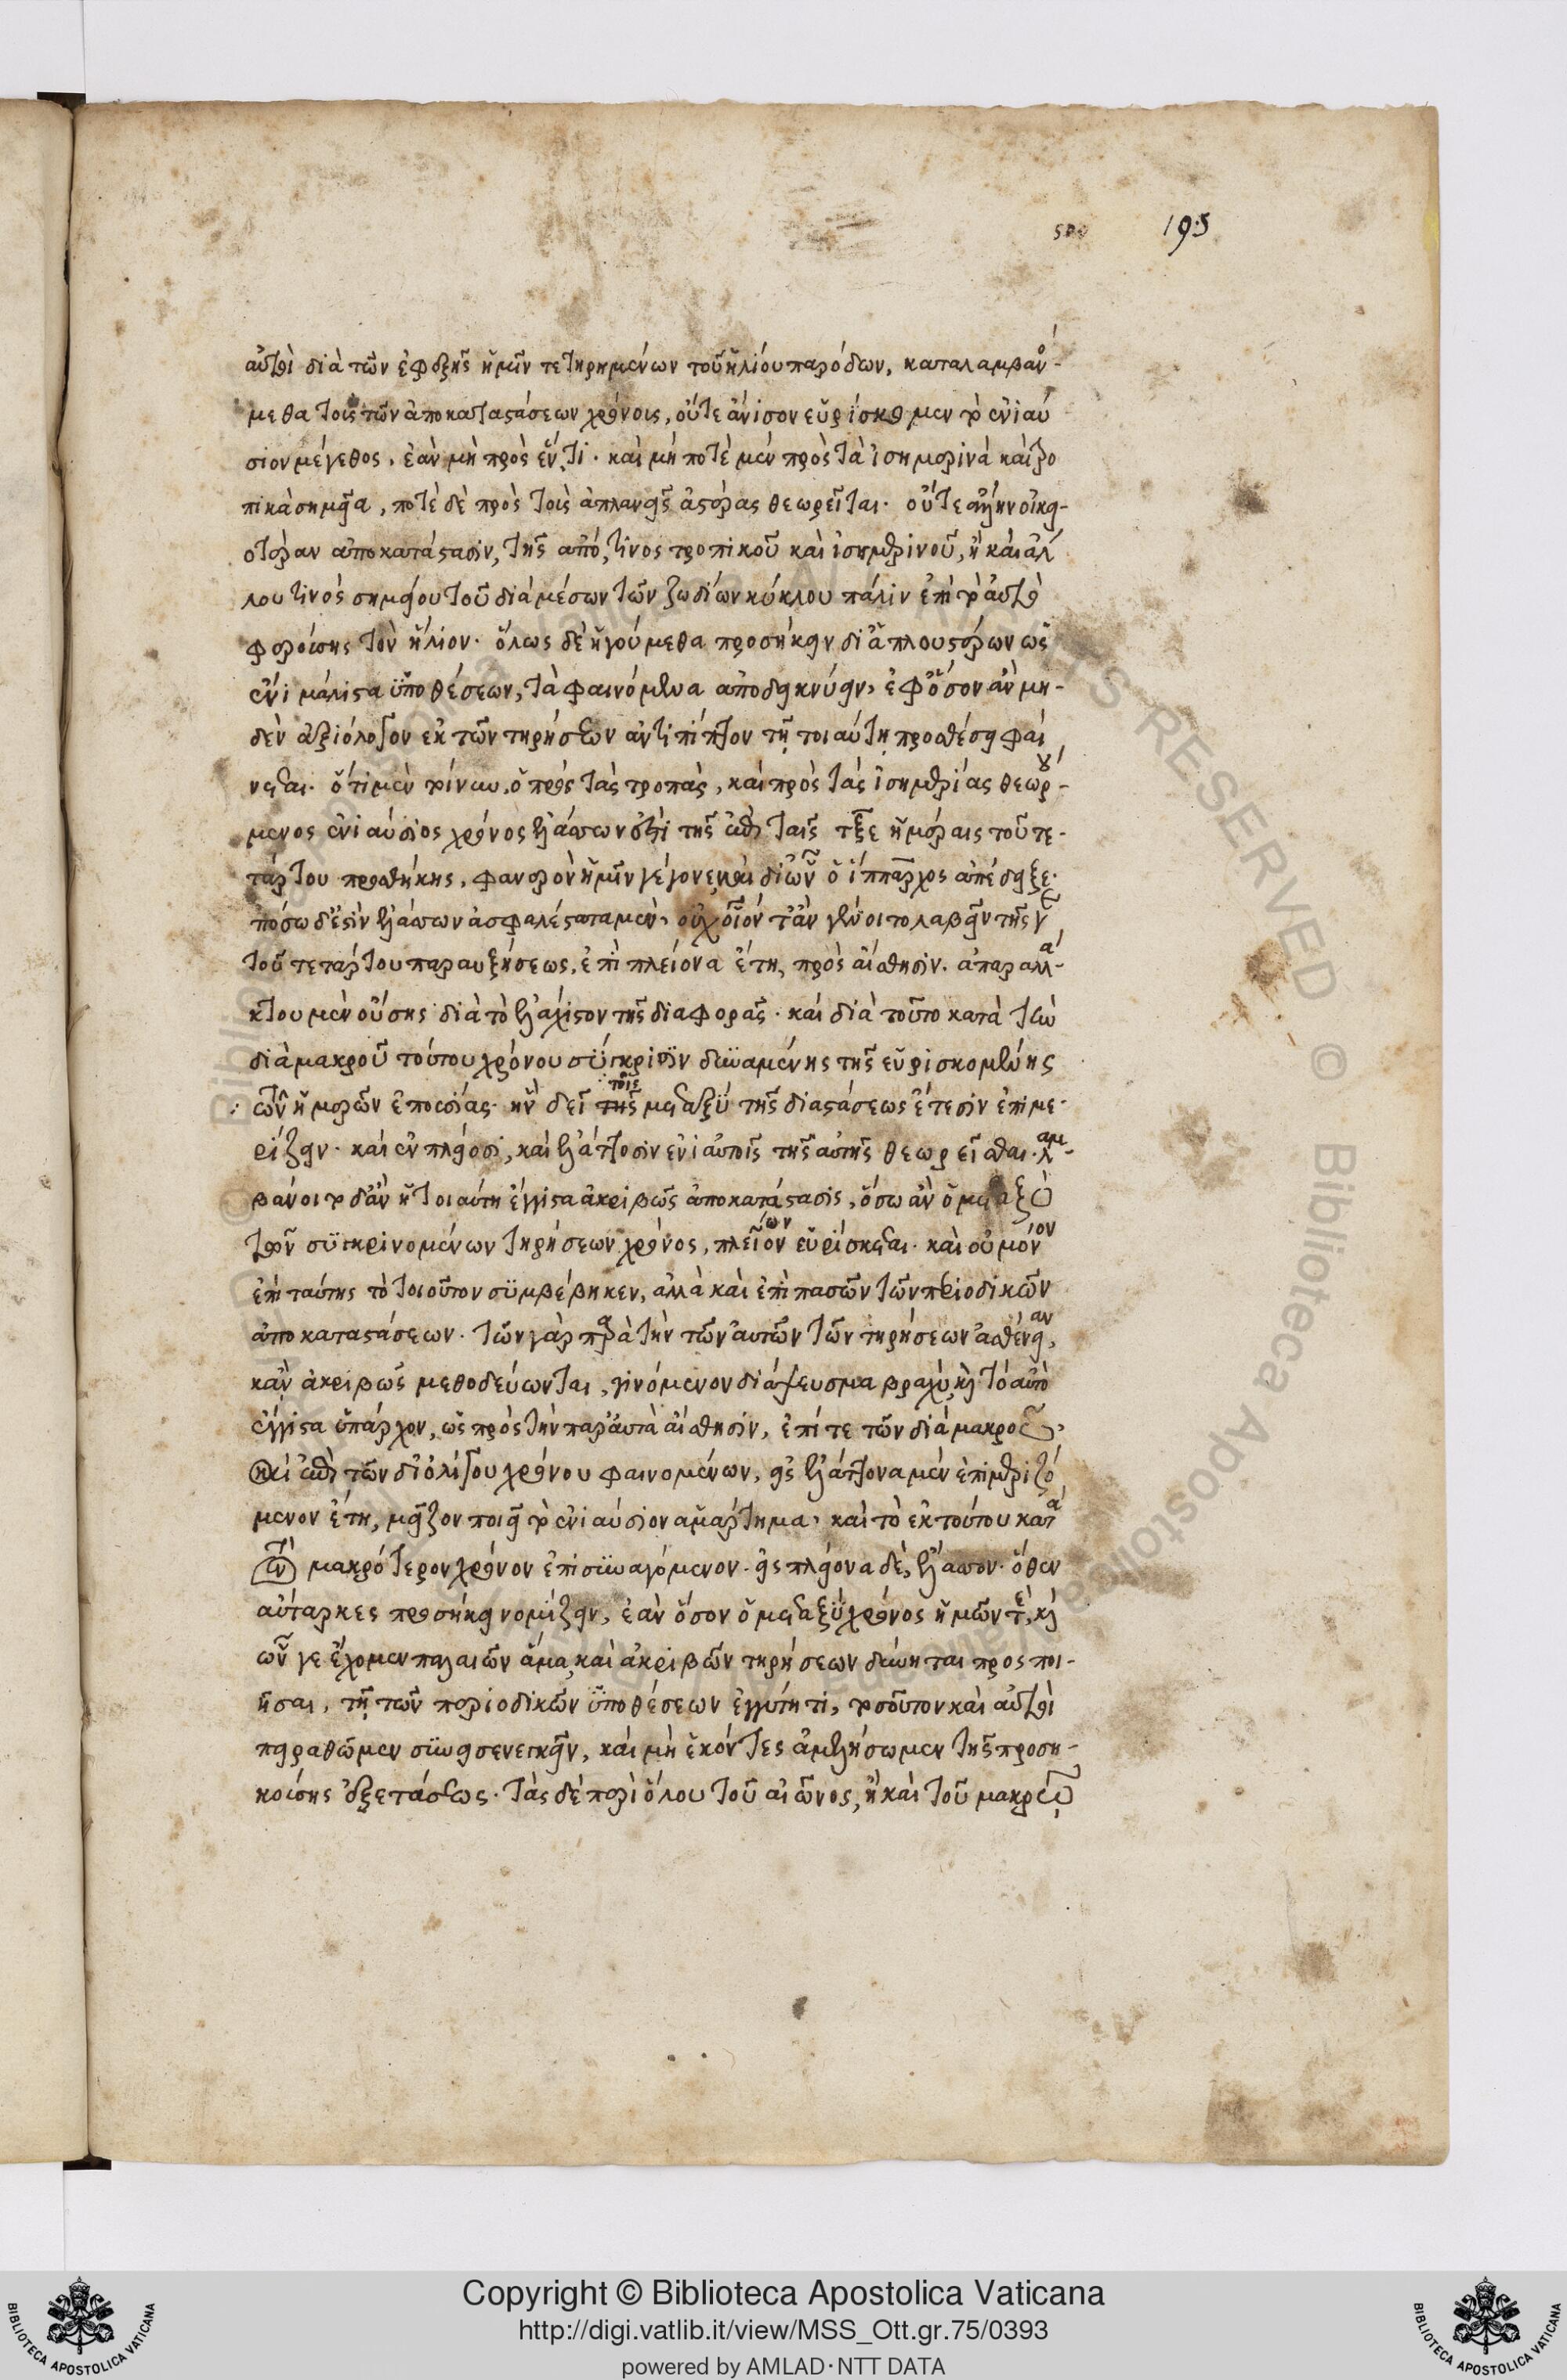 αὐτοὶ διὰ τῶν ἐφεξῆς ἡμῖν τετηρημένων τοῦ ἡλίου παρόδων, καταλαμβανό-
μεθα τοῖς τῶν ἀποκαταστάσεων χρόνοις, οὔτε ἄνισον εὑρίσκομεν τὸ ἐνιαύ
σιον μέγεθος, ἐὰν μὴ πρὸς ἕν τι. καὶ μή ποτὲ μὲν πρὸς τὰ ἰσημερινὰ καὶ τρο
πικὰ σημεῖα, ποτὲ δὲ πρὸς τοὺς ἀπλανεῖς ἀστέρας θεωρεῖται. οὔτε ἄλλην οἰκει-
οτέραν ἀποκατάστασιν, τῆς ἀπό τινος τροπικοῦ καὶ ἰσημερινοῦ, ἢ καὶ ἄλ
λου τινὸς σημείου τοῦ διὰ μέσων τῶν ζωδίων κύκλου πάλιν ἐπὶ τὸ αὐτὸ
φερούσης τὸν ἥλιον. ὅλως δὲ ἡγούμεθα προσήκειν δι' ἁπλουστέρων ὡς
ἔνι μάλιστα ὑποθέσεων, τὰ φαινόμενα ἀποδεικνύειν, ἐφ' ὅσον ἂν μη-
δὲν ἀξιόλογον ἐκ τῶν τηρήσεων ἀντιπίπτον τῇ τοιαύτῃ προθέσει φαί
νεται. ὅτι μὲν τοίνυν, ὁ πρὸς τὰς τροπὰς, καὶ πρὸς τὰς ἰσημερίας θεωρού-
μενος ἐνιαύσιος χρόνος ἐλάσσων ἐστὶ τῆς ἐπὶ ταῖς τξε ἡμέραις τοῦ τε-
τάρτου προσθήκης, φανερὸν ἡμῖν γέγονε, καὶ δι' ὧν ὁ ἵππαρχος ἀπέδειξε.
πόσω δ' ἐστὶν ἐλάσσων ἀσφαλέστατα μὲν, οὐχ οἷόν τ' ἂν γένοιτο λαβεῖν τῆς γε
τοῦ τετάρτου παραυξήσεως, ἐπὶ πλείονα ἔτη, πρὸς αἴσθησιν. ἀπαραλλά-
κτου μὲν οὔσης διὰ τὸ ἐλάχιστον τῆς διαφορᾶς. καὶ διὰ τοῦτο κατὰ τὴν
διὰ μακροῦ τούτου χρόνου σύγκρισιν δυναμένης τῆς εὑρισκομένης
τῶν ἡμερῶν ἐπουσίας. ἣν δεῖ τῆς τοῖς μεταξὺ τῆς διαστάσεως ἔτεσιν ἐπιμε-
ρίζειν. καὶ ἐν πλείοσι, καὶ ἐλάττοσιν ἐνιαυτοῖς τῆς αὐτῆς θεωρεῖσθαι. λαμ-
βάνοιτο δ' ἂν ἡ τοιαύτη ἔγγιστα ἀκριβῶς ἀποκατάστασις, ὅσω ἂν ὁ μεταξὺ
τῶν συγκρινομένων τηρήσεων χρόνος, πλείων εὑρίσκεται. καὶ οὐ μόνον
ἐπὶ ταύτης τὸ τοιοῦτον συμβέβηκεν, ἀλλὰ καὶ ἐπὶ πασῶν τῶν περιοδικῶν
ἀποκαταστάσεων. τῶν γὰρ παρὰ τὴν τῶν αὐτῶν τῶν τηρήσεων ἀσθένειαν,
κἂν ἀκριβῶς μεθοδεύωνται, γινόμενον διάψευσμα βραχὺ καὶ τὸ αὐτὸ
ἔγγιστα ὑπάρχον, ὡς πρὸς τὴν παρ' αὐτὰ αἴσθησιν, ἐπί τε τῶν διὰ μακροῦ,
καὶ ἐπὶ τῶν δι' ὀλίγου χρόνου φαινομένων, εἰς ἐλάττονα μὲν ἐπιμεριζό
μενον ἔτη, μεῖζον ποιεῖ τὸ ἐνιαύσιον ἁμάρτημα, καὶ τὸ ἐκ τούτου κατὰ
τὸν μακρότερον χρόνον ἐπισυναγόμενον. εἰς πλείονα δὲ, ἔλασσον. ὅθεν
αὔταρκες προσήκει νομίζειν, ἐὰν ὅσον ὁ μεταξὺ χρόνος ἡμῶν τὲ, καὶ
ὧν γε ἔχομεν παλαιῶν ἅμα καὶ ἀκριβῶν τηρήσεων δύνηται προσποι-
ῆσαι, τῇ τῶν περιοδικῶν ὑποθέσεων ἐγγύτητι, τοσοῦτον καὶ αὐτοὶ
πειραθῶμεν συνεισενεγκεῖν, καὶ μὴ ἑκόντες ἀμελήσωμεν τῆς προση-
κούσης ἐξετάσεως. τὰς δὲ περὶ ὅλου τοῦ αἰῶνος, ἢ καὶ τοῦ μακρῷ
195
Copyright © Biblioteca Apostolica Vaticana
http://digi.vatlib.it/view/MSS_Ott.gr.75/0393
powered by AMLAD·NTT DATA